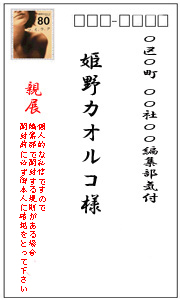 □□□-□□□□
○区○町 ○○社○○編集部気付
姫野カオルコ様
80
親展
個人的な私信ですので
編集部で開封する規則がある場合
開封前に必ず御本人に確認をとって下さい